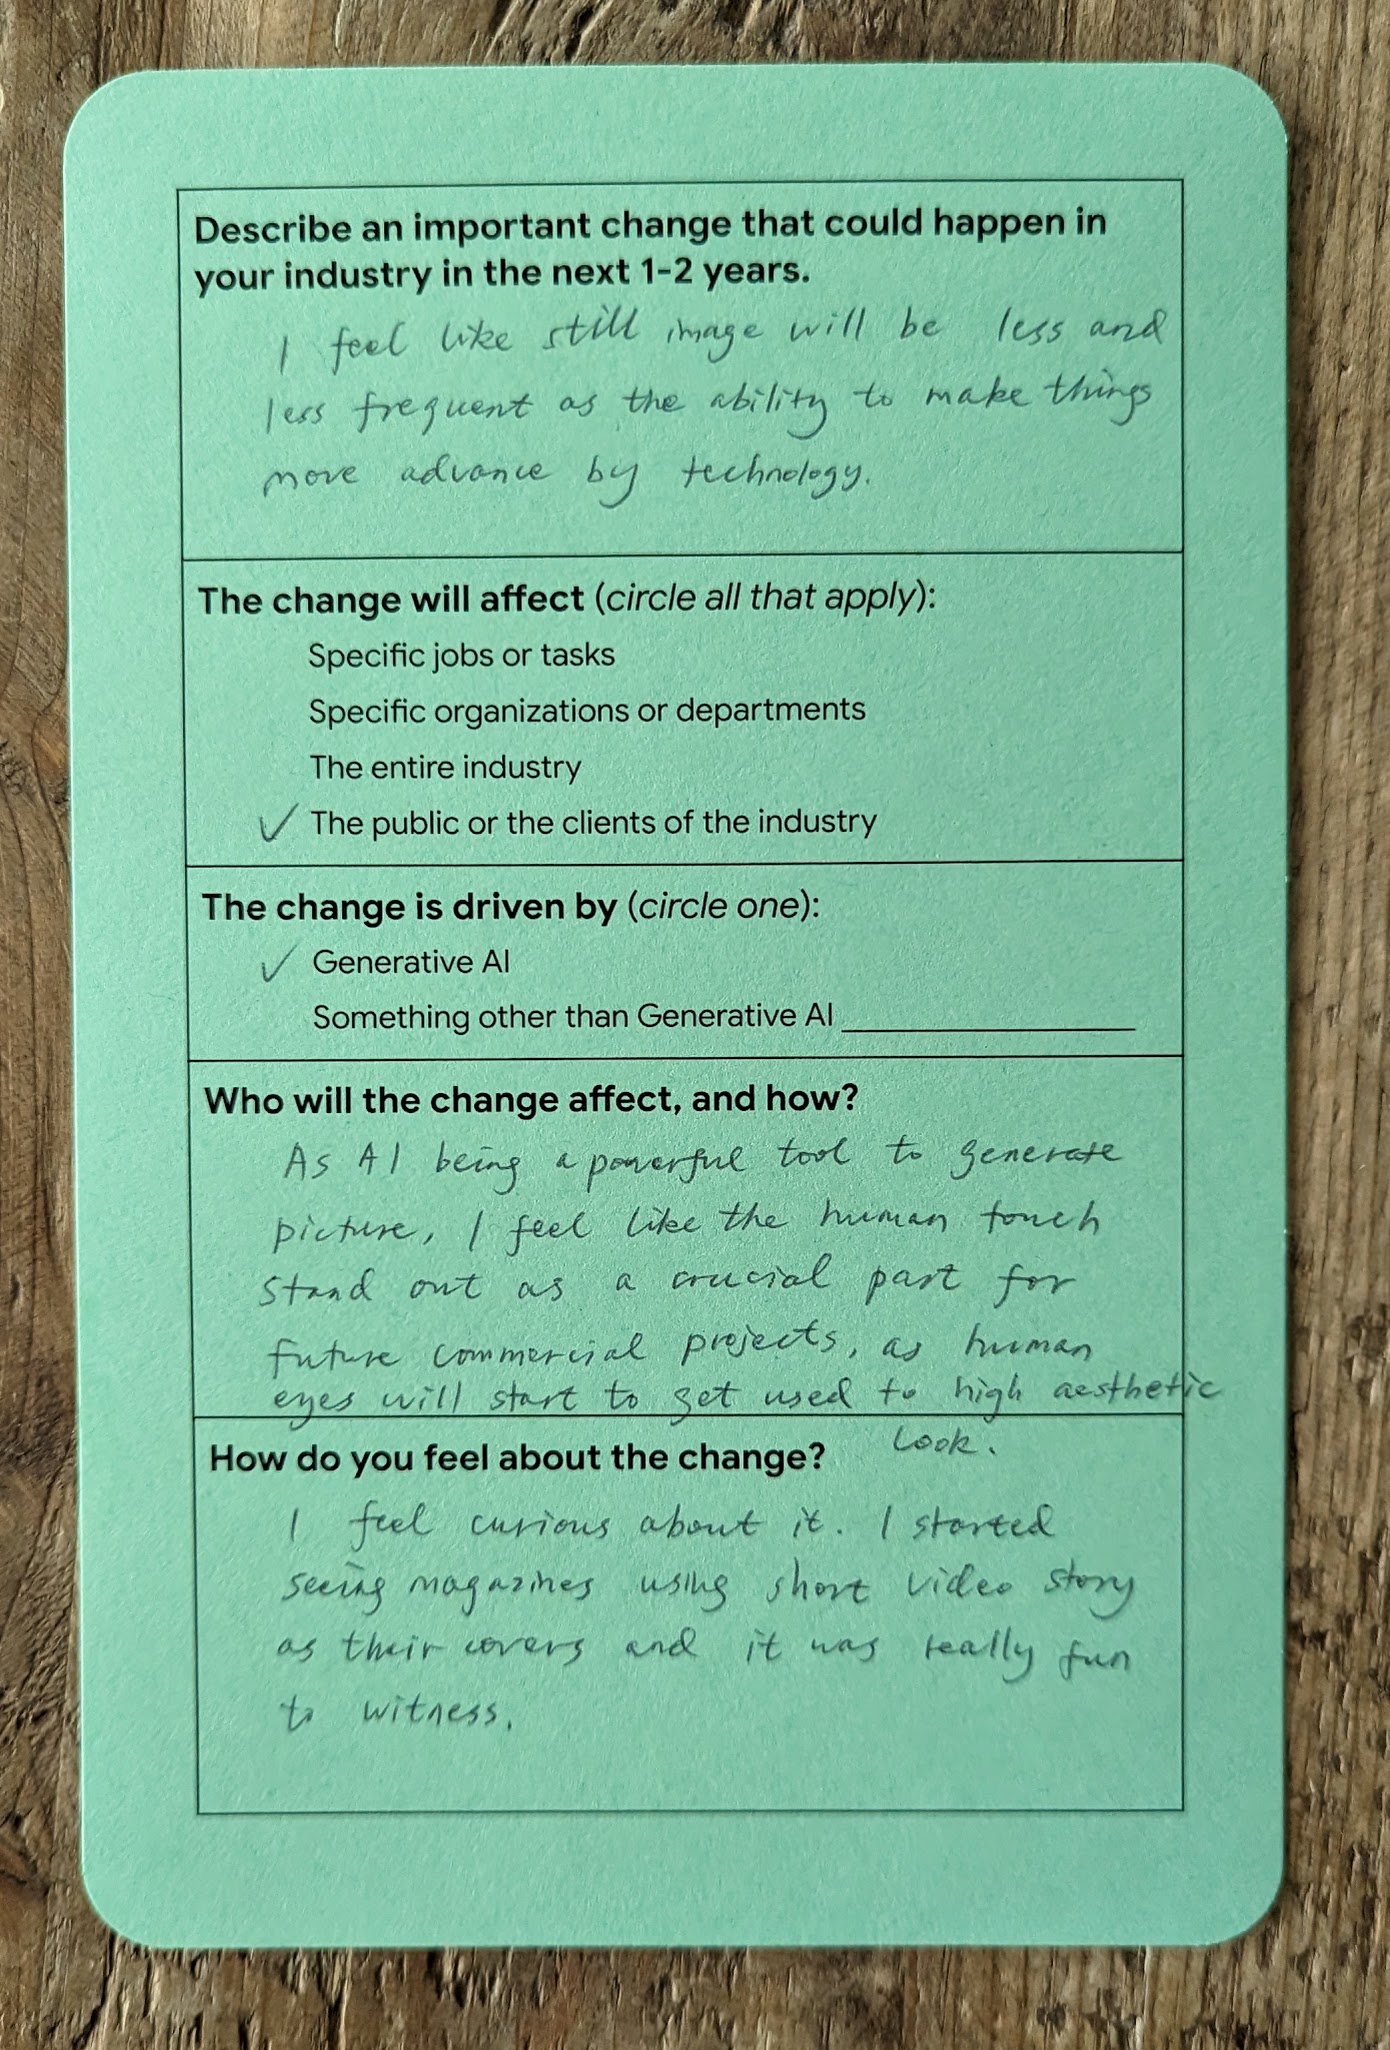 Describe an important change that could happen in
your industry in the next 1-2 years.
I feel like still image will be less and
less frequent as the ability to make things
more advance by technology.
The change will affect (circle all that apply):
Specific jobs or tasks
Specific organizations or departments
The entire industry
✓ The public or the clients of the industry
The change is driven by (circle one):
✓ Generative AI
Something other than Generative AI ____________________
Who will the change affect, and how?
As AI being a powerful tool to generate
picture, I feel like the human touch
stand out as a crucial part for
future commercial projects, as human
eyes will start to get used to high aesthetic
look.
How do you feel about the change?
I feel curious about it. I started
seeing magazines using short video story
as their covers and it was really fun
to witness.